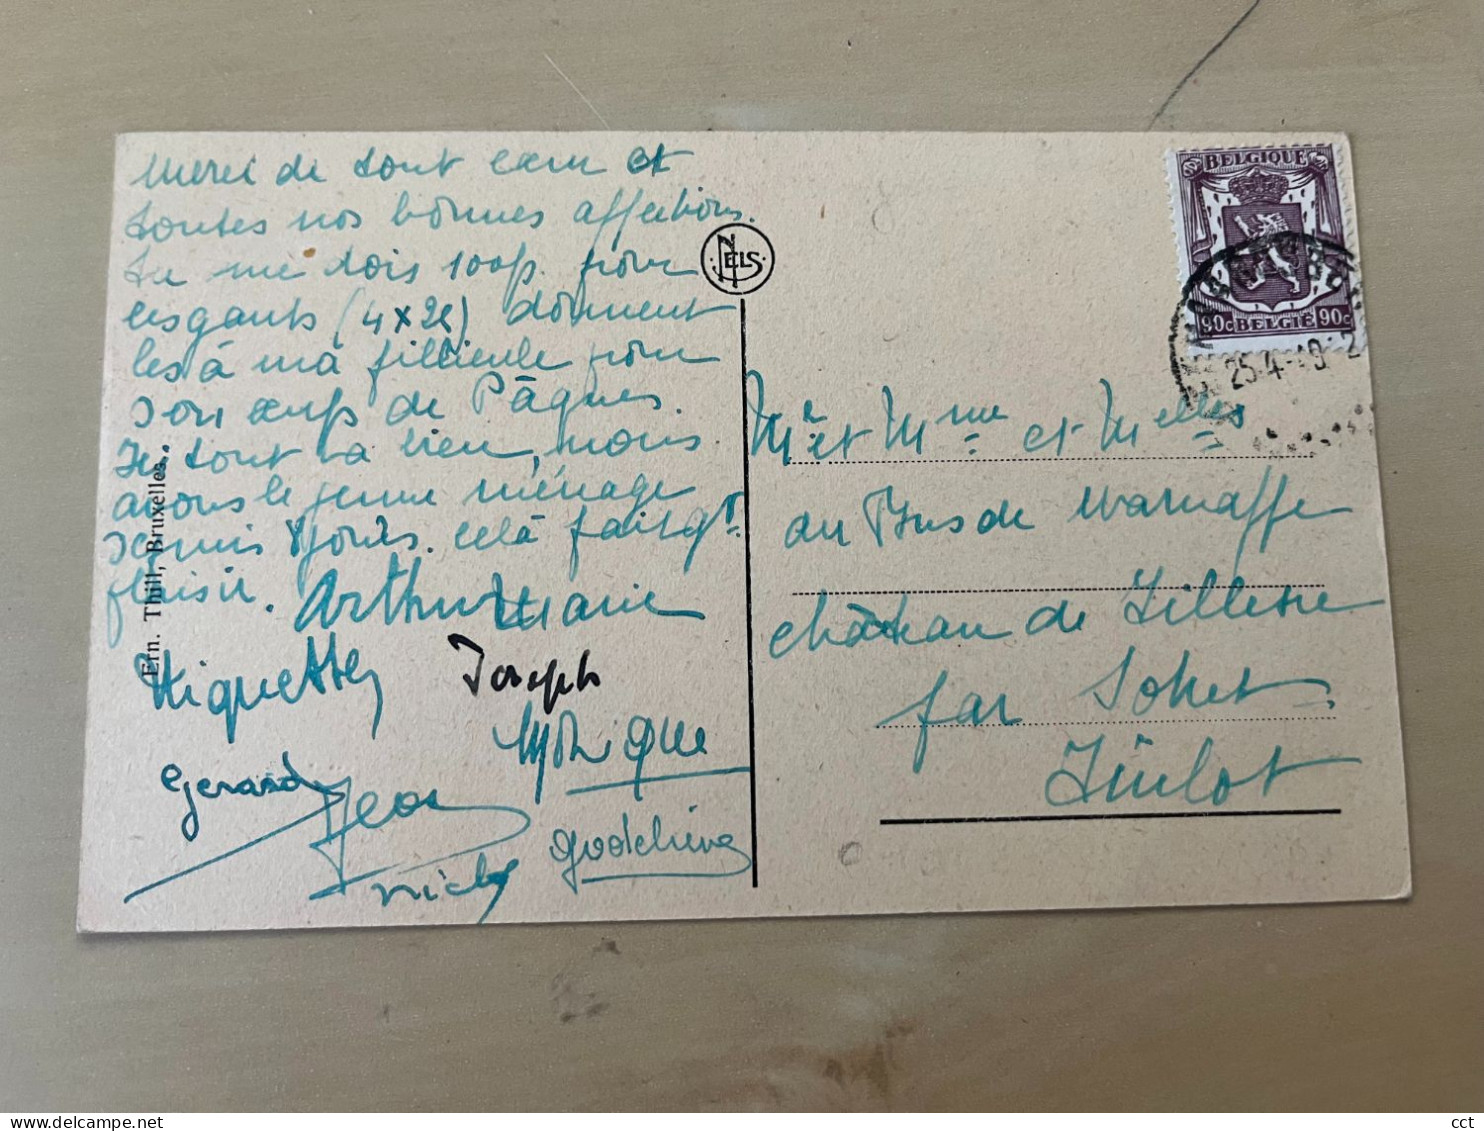 Merci de tout cœur et
toutes nos bonnes affections.
Tu me dois 100 fr. pour
les gants (4 x 25) donnent
les à ma fillieule pour
son œufs de Pâques.
Ici tout va bien, nous
avons le jeune ménage
depuis 8 jours. Celà fait gd
plaisir. Arthur Marie
Huguette Joseph
Monique
Gerard Jean
Godelieve
Nicky
Ern. Thill, Bruxelles.
NELS
BELGIQUE
90c BELGIË 90c
25-4-49
Mr et Mme et Melles
du Bus de Warnaffe
château de Tillesse
par Sohet-
Tinlot
cct